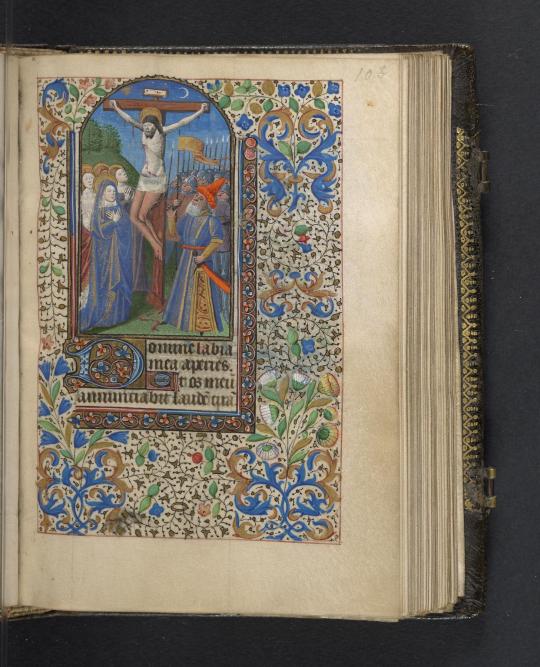 103
Domine labia
mea aperies.
et os meu
annunciabit laudē tuā